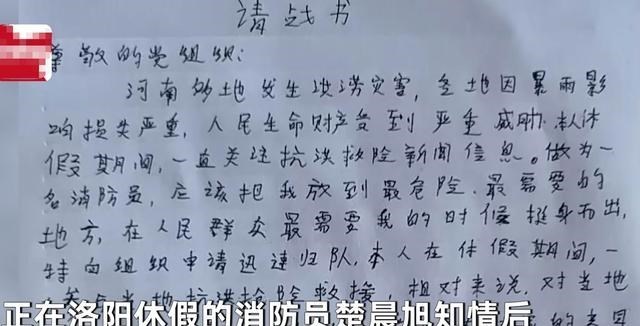 请战书
尊敬的党组织:
河南多地发生洪涝灾害,各地因暴雨影
响损失严重,人民生命财产受到严重威胁.本人休
假期间,一直关注抗洪救险新闻信息。做为一
名消防员,应该把我放到最危险.最需要的
地方,在人民群众最需要我的时候挺身而出,
特向组织申请迅速归队.本人在休假期间,一
当地抗洪抢险救援,相对来说,对当地
正在洛阳休假的消防员楚晨旭知情后